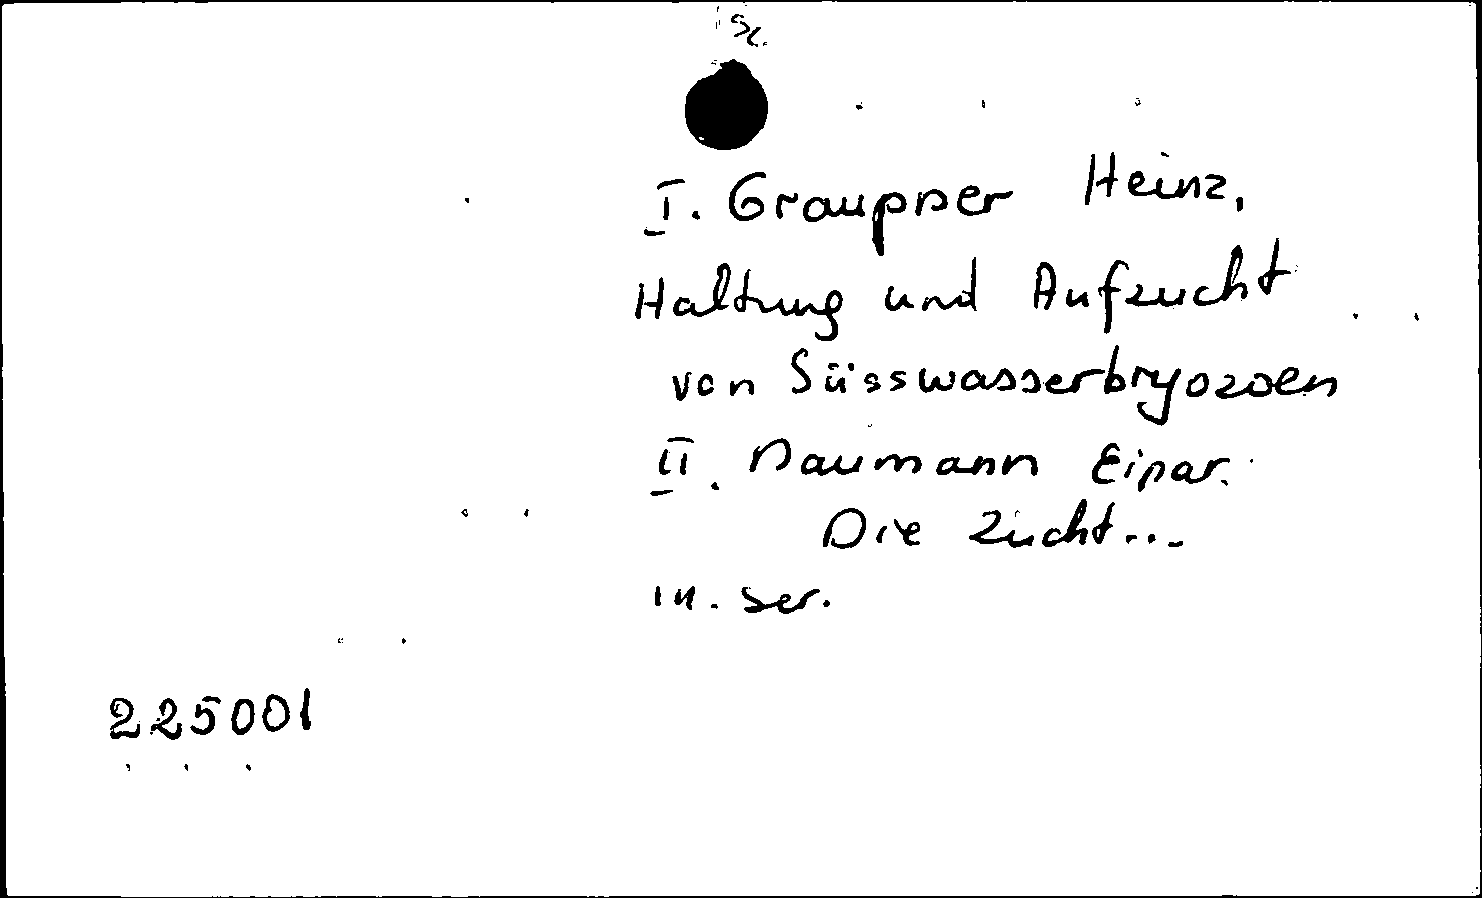 Sz.
I. Graupner Heinz,
Haltung und Aufzucht
von Süsswasserbryozoen
II. Naumann Einar.
Die Zucht...
III. Ser.
225001